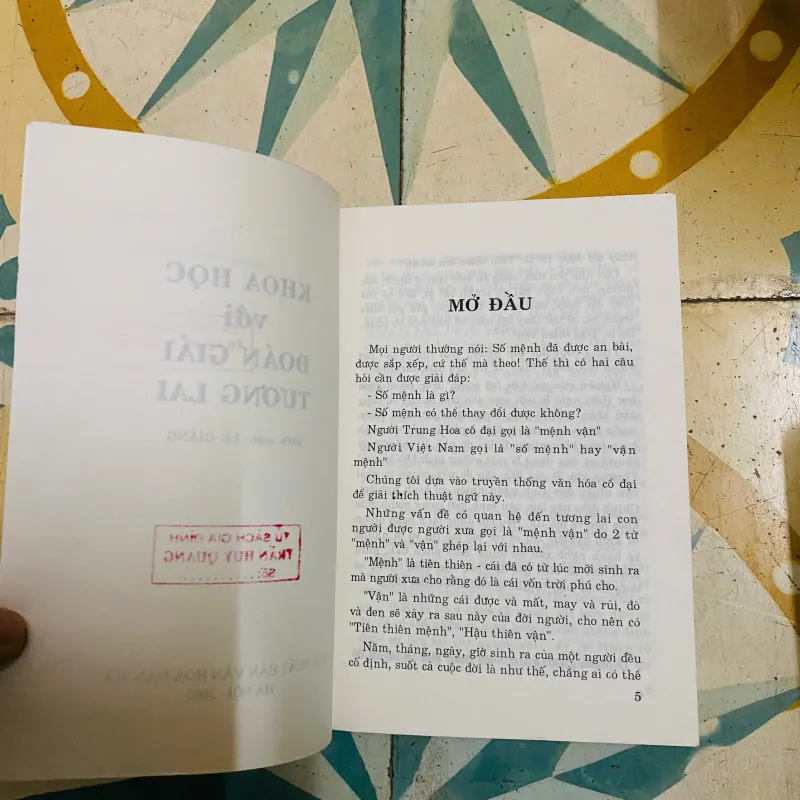 KHOA HỌC
với
ĐOÁN GIẢI
TƯƠNG LAI
LÊ GIẢNG
TỦ SÁCH GIA ĐÌNH
TRẦN HUY QUANG
Số:
XUẤT BẢN VĂN HÓA DÂN TỘC
HÀ NỘI - 2002
MỞ ĐẦU
Mọi người thường nói: Số mệnh đã được an bài,
được sắp xếp, cứ thế mà theo! Thế thì có hai câu
hỏi cần được giải đáp:
- Số mệnh là gì?
- Số mệnh có thể thay đổi được không?
Người Trung Hoa cổ đại gọi là "mệnh vận"
Người Việt Nam gọi là "số mệnh" hay "vận
mệnh"
Chúng tôi dựa vào truyền thống văn hóa cổ đại
để giải thích thuật ngữ này.
Những vấn đề có quan hệ đến tương lai con
người được người xưa gọi là "mệnh vận" do 2 từ
"mệnh" và "vận" ghép lại với nhau.
"Mệnh" là tiên thiên - cái đã có từ lúc mới sinh ra
mà người xưa cho rằng đó là cái vốn trời phú cho.
"Vận" là những cái được và mất, may và rủi, đỏ
và đen sẽ xảy ra sau này của đời người, cho nên có
"Tiên thiên mệnh", "Hậu thiên vận".
Năm, tháng, ngày, giờ sinh ra của một người đều
cố định, suốt cả cuộc đời là như thế, chẳng ai có thể
5